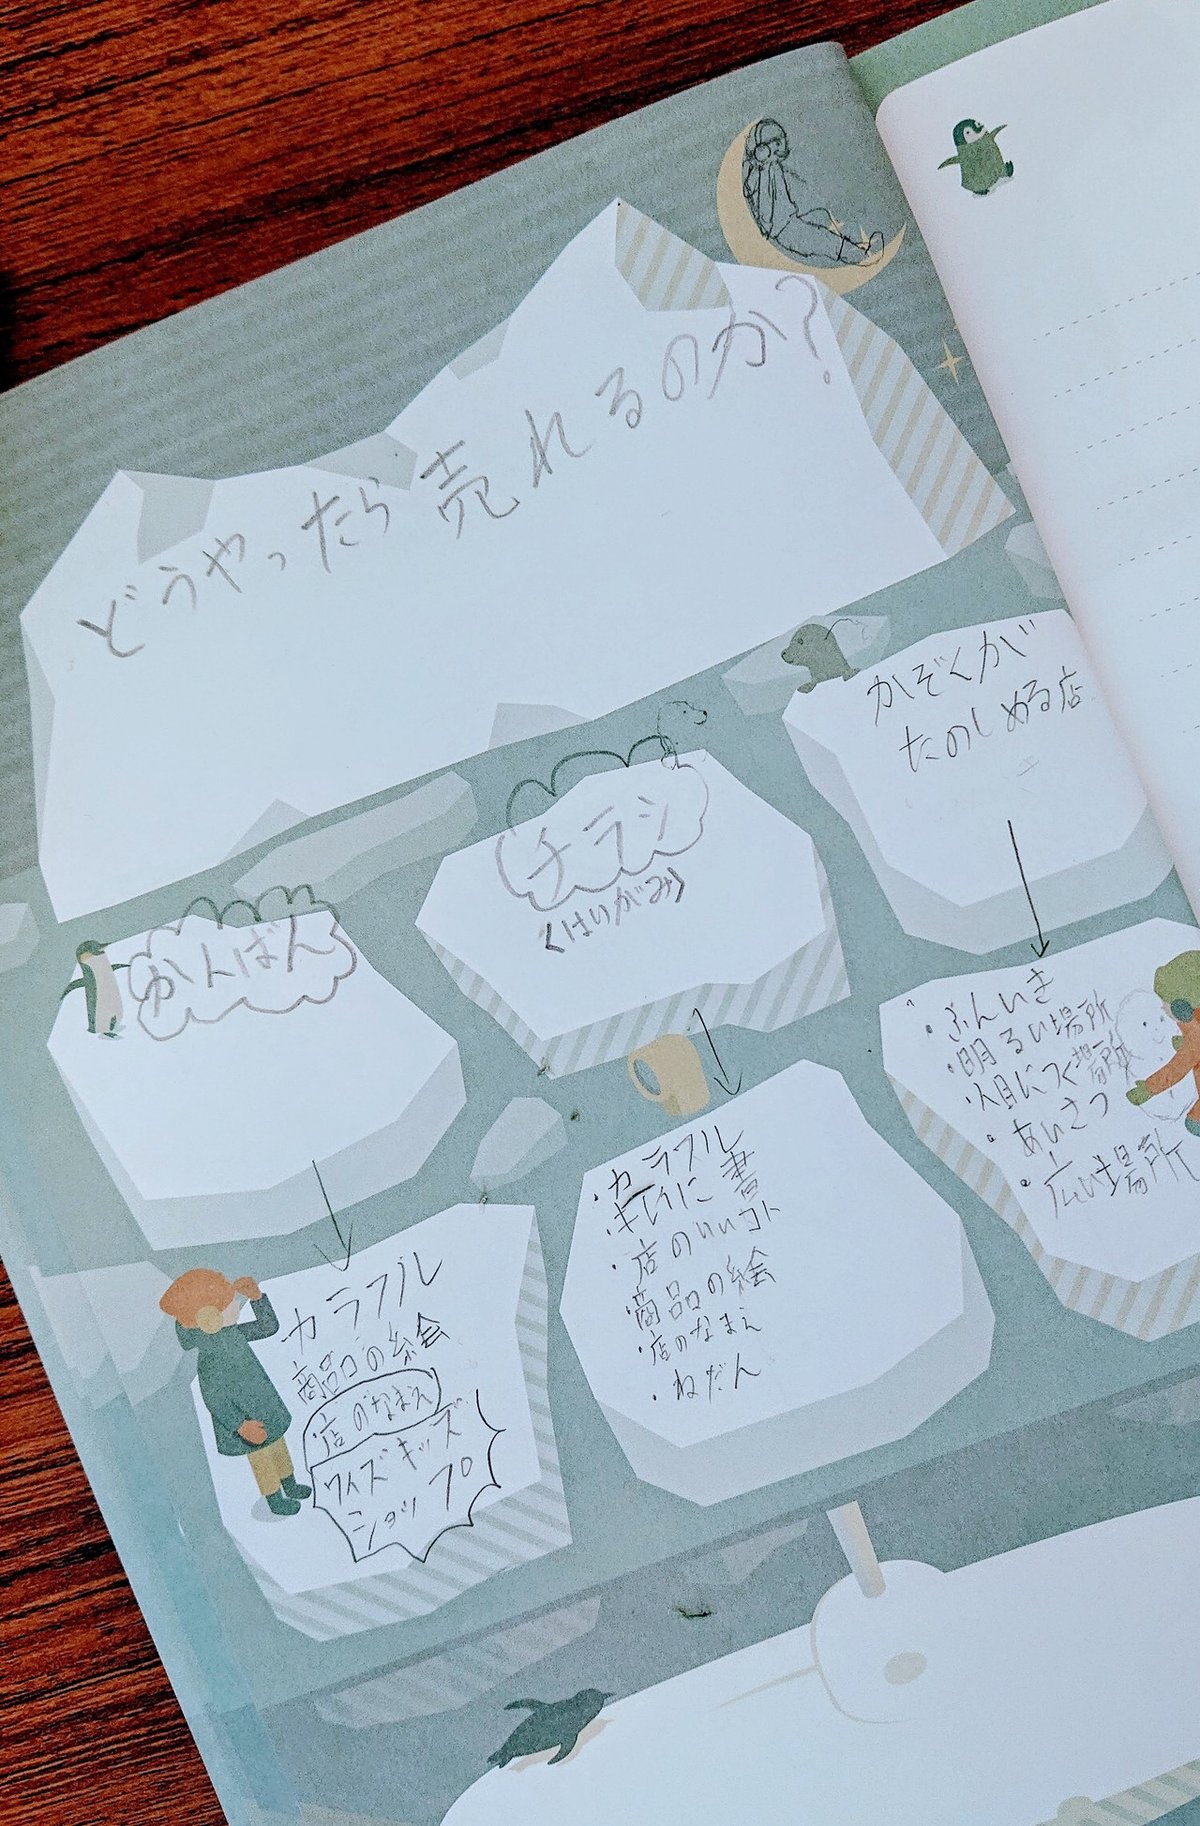 どうやったら売れるのか?
かんばん
カラフル
商品の絵
店のなまえ
ワイズキッズ
ショップ
チラシ
くはいがみ>
・カラフル
・キレイに書
・店のいいコト
・商品の絵
・店のなまえ
・ねだん
かぞくが
たのしめる店
・ふんいき
・明るい場所
・人目につく場所
・あいさつ
・広い場所